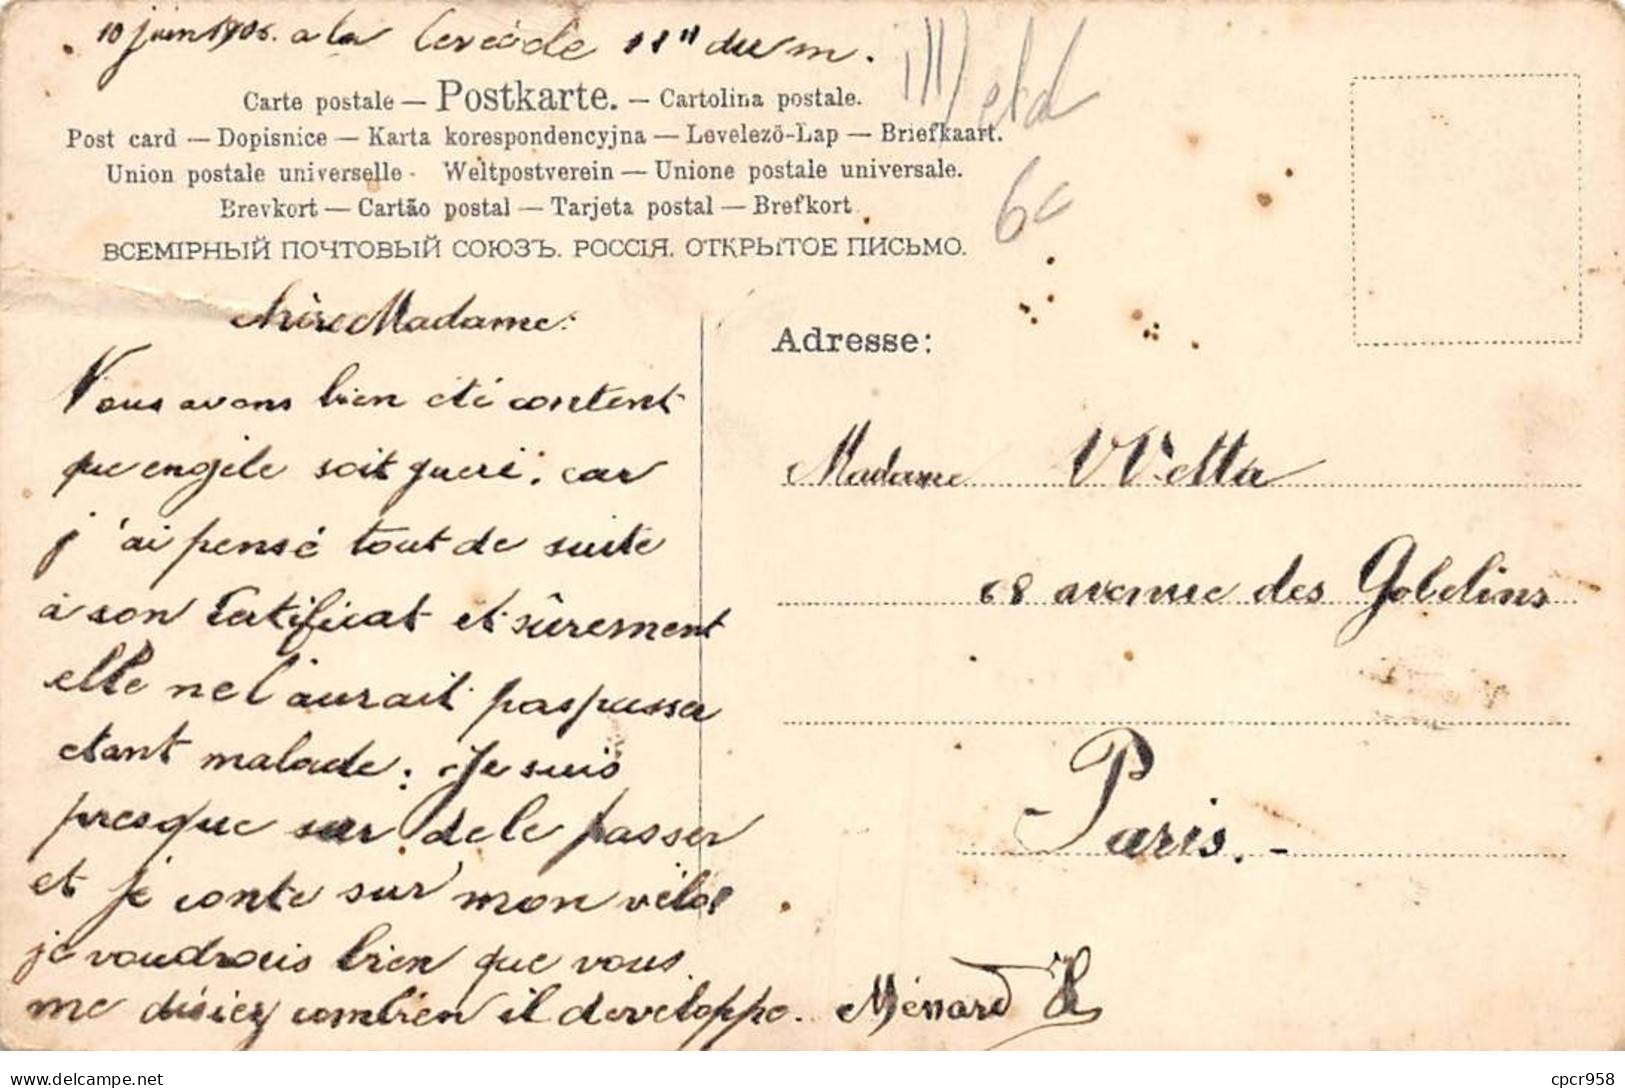 10 juin 1905. a la du m.
Carte postale — Postkarte. — Cartolina postale.
Post card — Dopisnice — Karta korespondencyjna — Levelezö-Lap — Briefkaart.
Union postale universelle - Weltpostverein — Unione postale universale.
Brevkort — Cartão postal — Tarjeta postal — Brefkort.
ВСЕМІРНЫЙ ПОЧТОВЫЙ СОЮЗЪ. РОССІЯ. ОТКРЫТОЕ ПИСЬМО.
6c
chère Madame:
Nous avons bien été content
que engèle soit gueri. car
j'ai pensé tout de suite
à son Certificat et sûrement
elle ne l'aurait pas passer
etant malade. Je suis
presque sur de le passer
et je conte sur mon vélo
je voudrais bien que vous
me disiez combien il developpe. Ménard
Adresse:
Madame Vetta
68 avenue des Gobelins
Paris.-
cpcr958